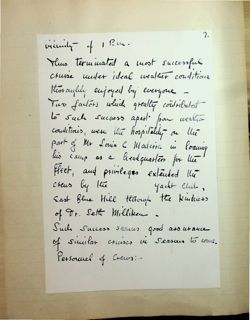 7.
vicinity of 1 P.M.
Thus terminated a most successful
cruise under ideal weather conditions
thoroughly enjoyed by everyone –
Two factors which greatly contributed
to such success apart from weather
conditions, were the hospitality on the
part of Mr Louis C Madeira in loaning
his camp as a headquarters for the
fleet, and privileges extended the
crews by the Yacht Club,
East Blue Hill through the kindness
of Dr. Seth Milliken.
Such success seems good assurance
of similar cruises in seasons to come.
Personnel of Crews:-